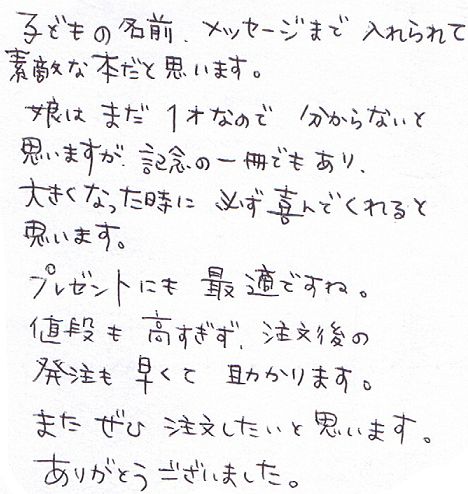 子どもの名前、メッセージまで入れられて
素敵な本だと思います。
娘はまだ1才なので分からないと
思いますが、記念の一冊でもあり、
大きくなった時に必ず喜んでくれると
思います。
プレゼントにも最適ですね。
値段も高すぎず、注文後の
発注も早くて助かります。
またぜひ注文したいと思います。
ありがとうございました。